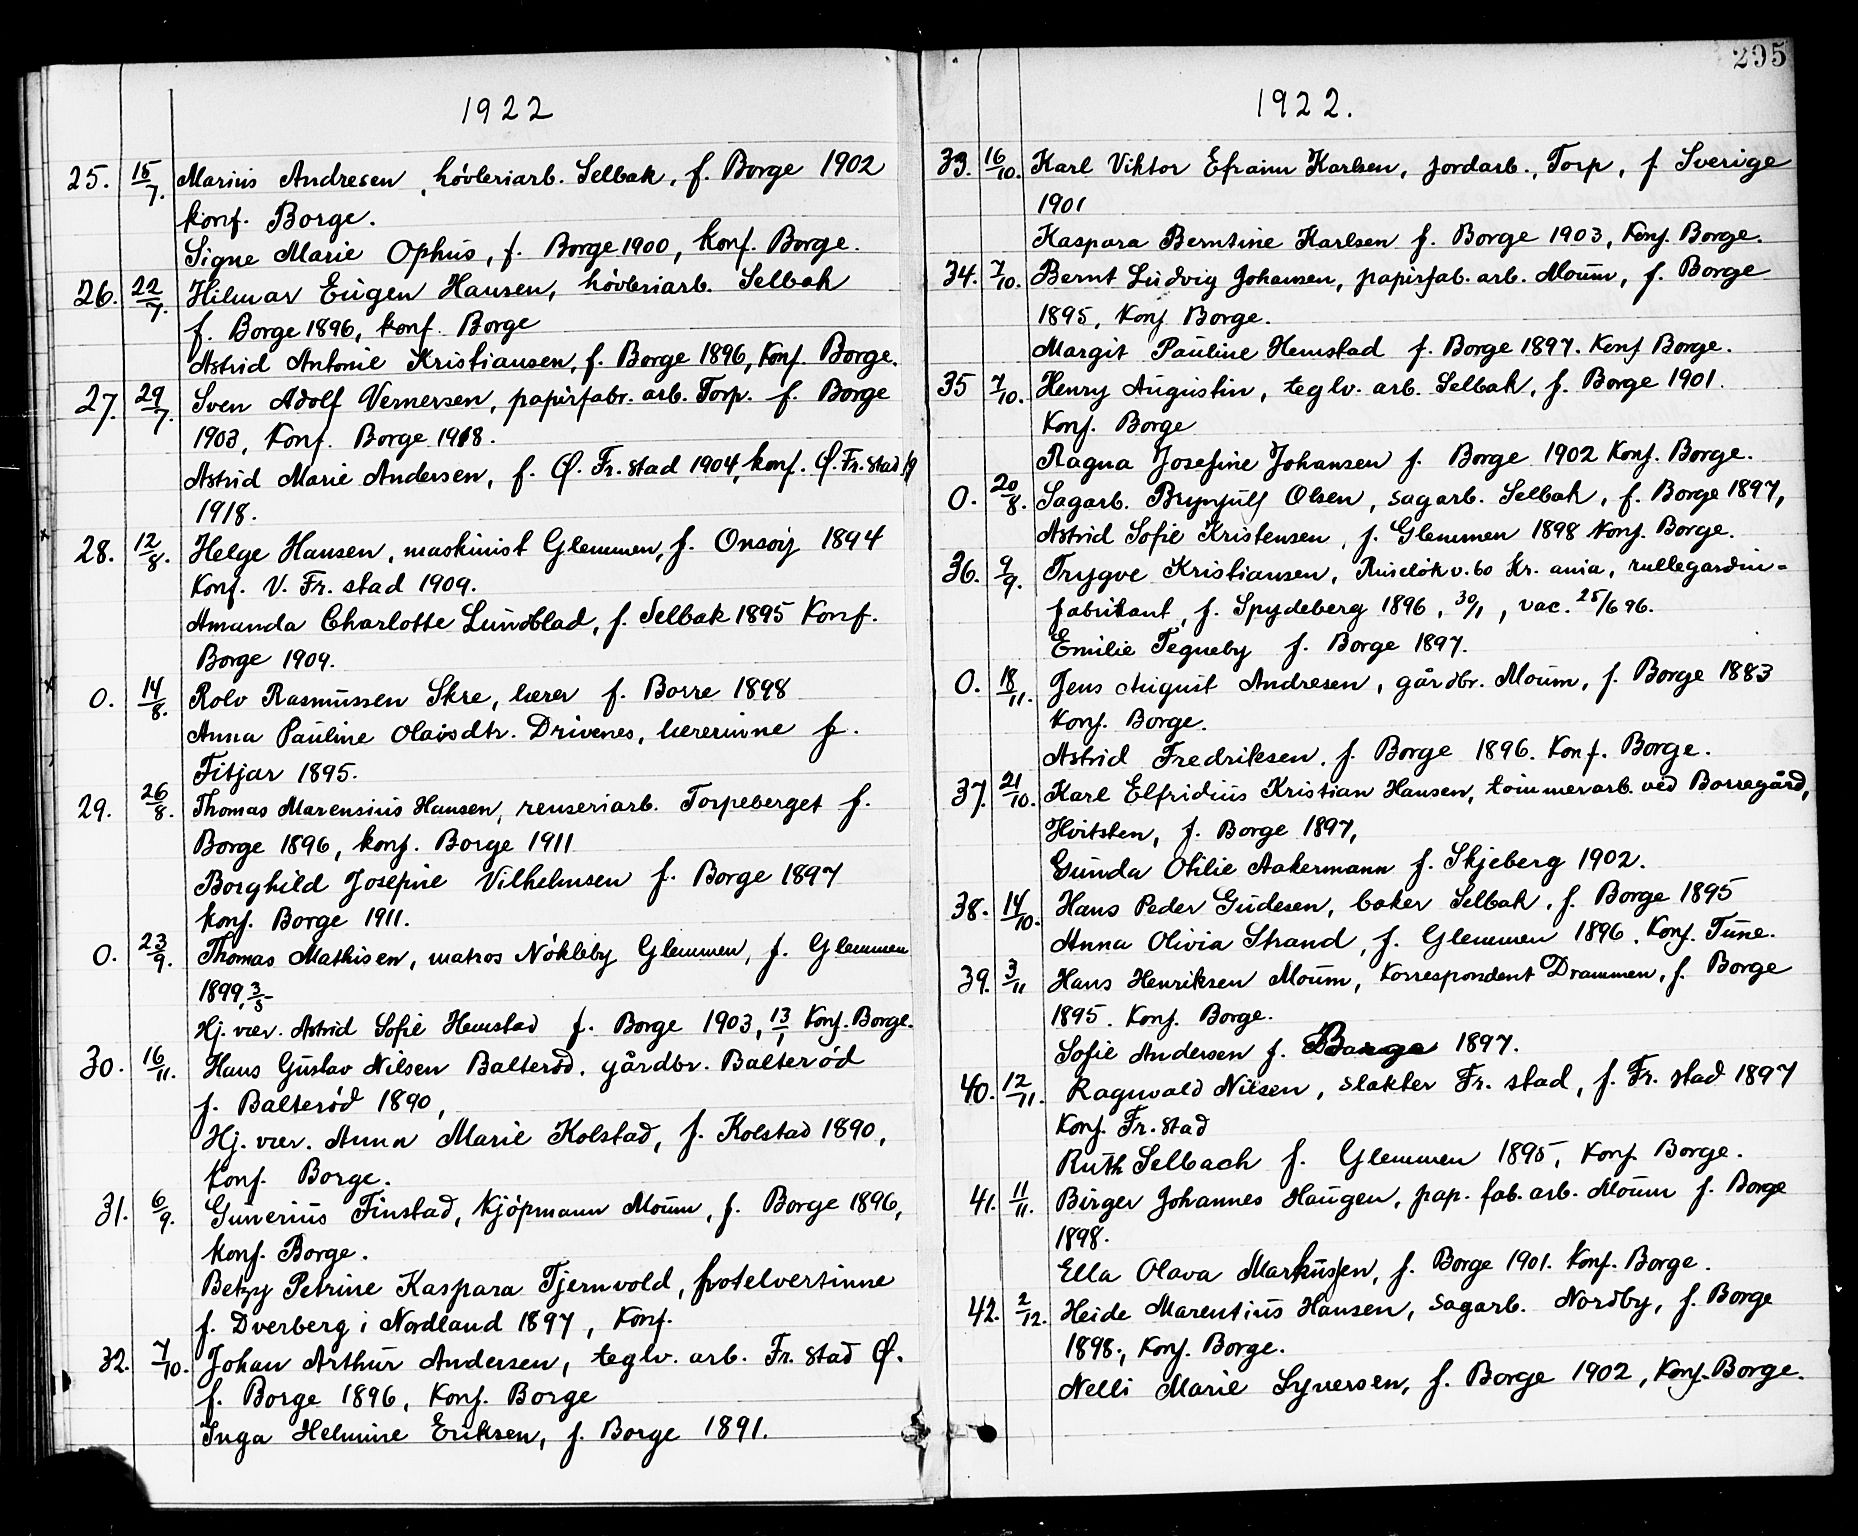 1922
25. 15/7. Marius Andresen, høvleriarb. Selbak, f. Borge 1902
konf. Borge.
Signe Marie Ophus, f. Borge 1900, konf. Borge.
26. 22/7. Hilmar Eugen Hansen, høvleriarb. Selbak
f. Borge 1896, konf. Borge
Astrid Antonie Kristiansen, f. Borge 1896, konf. Borge.
27. 29/7. Sven Adolf Vernersen, papirfabr. arb. Torp. f. Borge
1903, konf. Borge 1918.
Astrid Marie Andersen, f. Ø. Fr.stad 1904, konf. Ø. Fr.stad
1918.
28. 12/8. Helge Hansen, maskinist Glemmen, f. Onsøy 1894
konf. V. Fr. stad 1909.
Amanda Charlotte Lundblad, f. Selbak 1895 konf.
Borge 1909.
0. 14/8. Rolv Rasmussen Skre, lærer f. Borre 1898
Anna Pauline Olavsdtr. Drivenes, lærerinne f.
Fitjar 1895.
29. 26/8. Thomas Marensius Hansen, renseriarb. Torpeberget f.
Borge 1896, konf. Borge 1911
Borghild Josefine Vilhelmsen f. Borge 1897
konf. Borge 1911.
0. 23/9. Thomas Mathisen, matros Nøkleby Glemmen, f. Glemmen
1899, 3/5
Hj. vær. Astrid Sofie Hemstad f. Borge 1903, 13/1 konf. Borge.
30. 16/11. Hans Gustav Nilsen Balterød, gårdbr. Balterød
f. Balterød 1890,
Hj. vær. Anna Marie Kolstad, f. Kolstad 1890,
konf. Borge.
31. 6/9. Gunerius Finstad, kjøpmann Moum, f. Borge 1896,
konf. Borge.
Betzy Petrine Kaspara Tjernvold, hotelvertinne
f. Dverberg i Nordland 1897, konf.
32. 7/10. Johan Arthur Andersen, teglv. arb. Fr. stad Ø.
f. Borge 1896, konf. Borge
Inga Helmine Eriksen, f. Borge 1891.
295
1922.
33. 16/10. Karl Viktor Efraim Karlsen, jordarb., Torp, f. Sverige
1901
Kaspara Berntine Karlsen f. Borge 1903, konf. Borge.
34. 7/10. Bernt Ludvig Johansen, papirfab. arb. Moum, f. Borge
1895, konf Borge.
Margit Pauline Hemstad f. Borge 1897. konf Borge.
35 7/10. Henry Augustin, teglv. arb. Selbak, f. Borge 1901.
konf. Borge
Ragna Josefine Johansen f. Borge 1902 konf. Borge.
0. 20/8. Sagarb. Brynjulf Olsen, sagarb. Selbak, f. Borge 1897,
Astrid Sofie Kristensen, f. Glemmen 1898 konf. Borge.
36. 9/9. Trygve Kristiansen, Ruseløkv. 60 Kr. ania, rullegardin-
fabrikant, f. Spydeberg 1896, 30/1, vac. 25/6 96.
Emilie Tegneby f. Borge 1897.
0. 18/11. Jens August Andresen, gårdbr. Moum, f. Borge 1883
konf. Borge.
Astrid Fredriksen, f. Borge 1896. konf. Borge.
37. 21/10. Karl Elfridius Kristian Hansen, tømmerarb. ved Borregård,
Hvitsten, f. Borge 1897,
Gunda Otilie Aakermann f. Skjeberg 1902.
38. 14/10. Hans Peder Gudesen, baker Selbak, f. Borge 1895
Anna Olivia Strand, f. Glemmen 1896, konf. Tune.
39. 3/11 Hans Henriksen Moum, korrespondent Drammen, f. Borge
1895. konf. Borge.
Sofie Andersen f. Borge 1897.
40. 12/11. Ragnvald Nilsen, slakter Fr. stad, f. Fr. stad 1897
konf. Fr. stad
Ruth Selbach f. Glemmen 1895, konf. Borge.
41. 11/11. Birger Johannes Haugen, pap. fab. arb. Moum f. Borge
1898.
Ella Olava Markussen, f. Borge 1901. konf. Borge.
42. 2/12. Heide Marentius Hansen, sagarb. Nordby, f. Borge
1898., konf. Borge.
Nelli Marie Syversen, f. Borge 1902, konf. Borge.